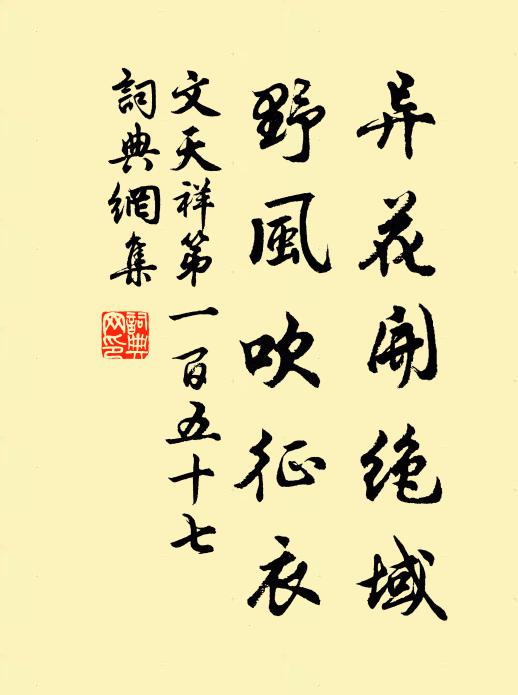 异花开绝域
野風吹征衣
文天祥第一百五十七
詞典網集
詞典網印